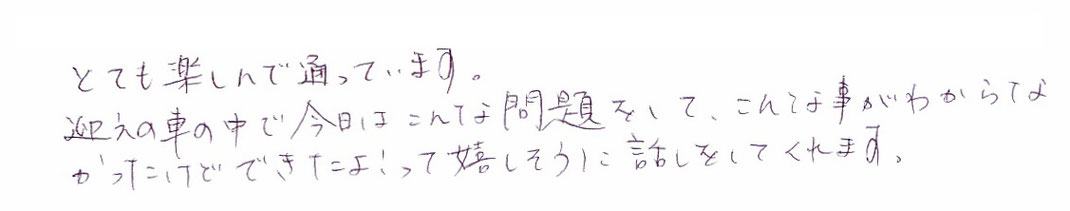 とても楽しんで通っています。
迎えの車の中で今日はこんな問題をして、こんな事がわからな
かったけどできたよ!って嬉しそうに話しをしてくれます。